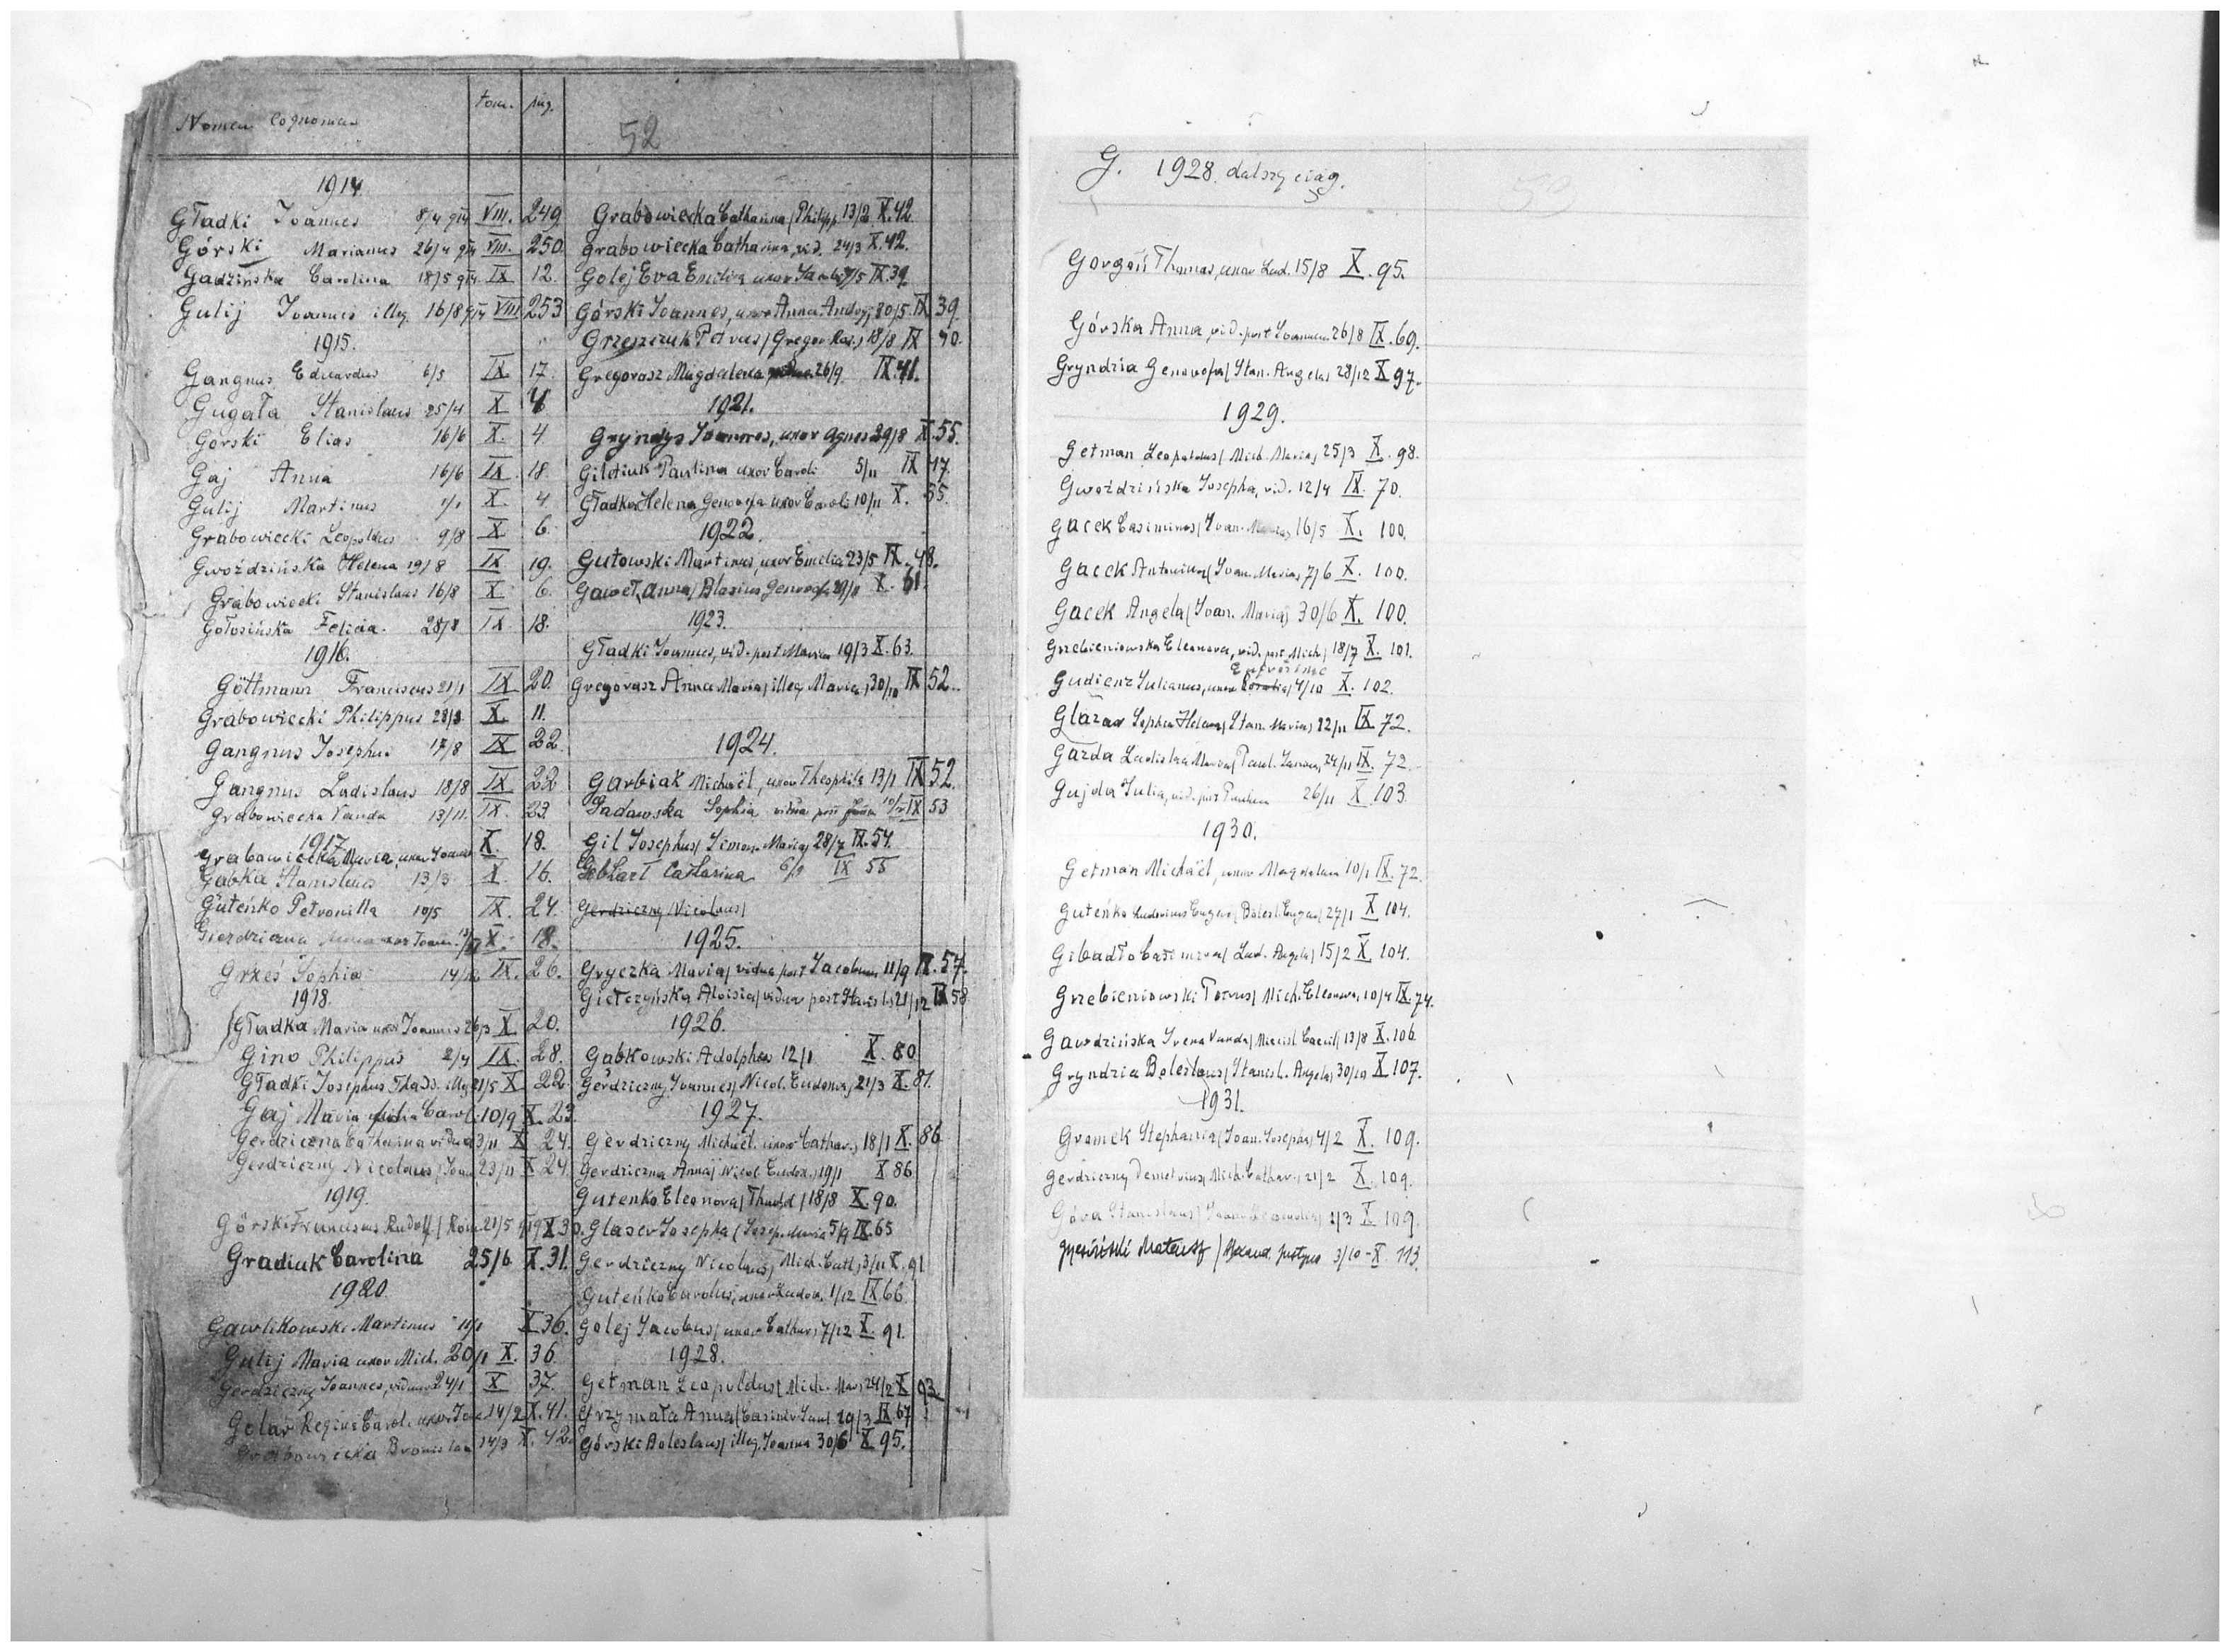 Nomen Cognomen tom. pag.
52
1914
Gładki Joannes 8/4 914 VIII. 249
Górski Marianus 26/4 914 VIII. 250.
Gadzińska Carolina 18/5 914 IX 12.
Gulij Joannes illeg. 16/8 914 VIII 253
1915.
Gangnus Eduardus 6/3 IX. 17.
Gugała Stanislaus 25/4 X 4
Górski Elias 16/6 X. 4.
Gaj Anna 16/6 IX. 18.
Gulij Martinus X. 4
Grabowiecki Leopoldus 9/8 X 6.
Gwoździńska Helena 19/8 IX. 19.
Grabowiecki Stanislaus 16/8 X 6.
Gołosińska Felicia. 28/8 IX. 18.
1916.
Göttmann Franciscus 21/1 IX 20.
Grabowiecki Philippus 28/3 X. 11.
Gangnus Josephus 17/8 IX 22.
Gangnus Ladislaus 18/8 IX 22
Grabowiecka Vanda 13/11. IX. 23.
1917
Grabowiecka Maria, uxor Joannis X. 18.
Gabka Stanislaus 13/3 X. 16.
Guteńko Petronilla 10/5 IX. 24.
Gierdziczna uxor Joann. X. 18.
Grześ Sophia 14/12 IX. 26.
1918.
Gładka Maria uxor Joannis 26/3 X. 20.
Gino Philippus 2/4 IX. 28.
Gładki Josephus Thadd. illeg 21/5 X 22.
Gaj Maria filia Carol. 10/9 X. 23.
Gerdziczna Catharina vidua 3/11 X 24.
Gerdziczny Nicolaus, Joan. 23/11 X 24.
1919.
Górski Franciscus Rudolf / Rom. 21/5 919 X 30.
Gradiuk Carolina 25/6 X. 31.
1920
Gawlikowski Martinus 11/1 X 36.
Gulij Maria uxor Mich. 20/1 X. 36.
Gerdziczny Joannes, viduus 24/1 X 37.
Golar Regina Carol. uxor 14/2 X. 41.
Grabowiecka Bronislaa 14/3 X. 42.
Grabowiecka Catharina / Philipp. 13/2 X. 42.
Grabowiecka Catharina, vid. 24/3 X. 42.
Golej Eva Emilia uxor Jacobi 7/5 IX 39
Górski Joannes, uxor Anna Andrej, 30/5. IX 39.
Grzeszczuk Petrus / Gregor Ros. / 18/8 IX 40.
Gregorasz Magdalena 26/9. IX. 41.
1921.
Gryndys Joannes, uxor Agnes 29/8 X. 55.
Giletiuk Paulina uxor Caroli 5/11 IX 47.
Gładka Helena Genovefa uxor Caroli 10/11 X. 55.
1922.
Gutowski Martinus, uxor Emilia 23/5 IX. 48.
Gaweł Anna / Blasius Genovefa 29/11 X. 61.
1923.
Gładki Joannes, vid. post Maria 19/3 X. 63.
Gregorasz Anna Maria, illeg Maria, 30/10 IX 52.
1924.
Garbiak Michaël, uxor Theophila 13/1 IX 52.
Gadawska Sophia vidua post IX 53
Gil Josephus / Simon. Maria, 28/7 IX. 54.
Gebhart Catharina 6/9 IX 55
Gerdziczny Nicolaus /
1925.
Gryczka Maria / vidua post Jacobum 11/9 IX. 57.
Giełczyńska Aloisia / vidua post Stanisl. 21/12 IX 58.
1926.
Gabkowski Adolphus 12/1 X. 80
Gerdziczny Joannes / Nicol. Eudonia, 21/3 X. 81.
1927.
Gerdziczny Michaël. uxor Cathar., 18/1 X. 86
Gerdziczna Anna / Nicol. Eudox., 19/1 X 86
Gutenko Eleonora / Thadd / 18/8 X. 90.
Glaser Josepha / Josep. Maria 5/9 IX. 65
Gerdziczny Nicolaus, Mich. Cath, 3/11 X. 91
Guteńko Carolus, uxor Ludov. 1/12 IX 66.
Golej Jacobus / uxor Cathar, 7/12 X. 91.
1928.
Getman Leopoldus / Mich. Mar., 24/2 X 93
Grzymała Anna / Casimir 29/3 IX 67
Górski Boleslaus / illeg. Joanna 30/6 X 95.
G. 1928. dalszy ciąg.
Gorgoń Thomas, uxor Lud. 15/8 X. 95.
Górska Anna, vid. post Joannem. 26/8 IX. 69.
Gryndzia Genovefa / Stan. Angela 28/12 X 97.
1929.
Getman Leopoldus / Mich. Maria, 25/3 X. 98.
Gwoździńska Josepha, vid. 12/4 IX. 70.
Gacek Casimirus / Joan. Maria, 16/5 X. 100.
Gacek Antonina / Joan. Maria, 7/6 X. 100.
Gacek Angela / Joan. Maria, 30/6 X. 100.
Grzebieniowska Eleonora, vid. post Mich, 18/7 X. 101.
Euphrosine
Gudienz Julianus, uxor Rosalia, 4/10 X. 102.
Glazar Sophia Helena / Stan. Maria, 22/11 IX. 72.
Gazda Ladislaa Maria / Paul. 24/11 IX. 72.
Gujda Julia, vid. post 26/11 X. 103.
1930.
Getman Michaël, uxor Magdalena 10/1 IX. 72.
Guteńko Ludovicus Eugen / Bolesl. Eugen / 27/1 X 104.
Gibadło Casimirus / Lud. Angela / 15/2 X. 104.
Grzebieniowski Petrus / Mich. Eleonora, 10/4 IX. 74.
Gawdzińska Irena Vanda / Miecisl. Caecil / 13/8 X. 106
Gryndzia Boleslaus / Stanisl. Angela, 30/10 X 107.
1931.
Gromek Stephania / Joan. Josepha, 4/2 X. 109.
Gerdziczny Demetrius, Mich. Cathar., 21/2 X. 109.
Góra Stanislaus / 2/3 X 109.
Mateusz / Justyna 3/10 - X. 113.